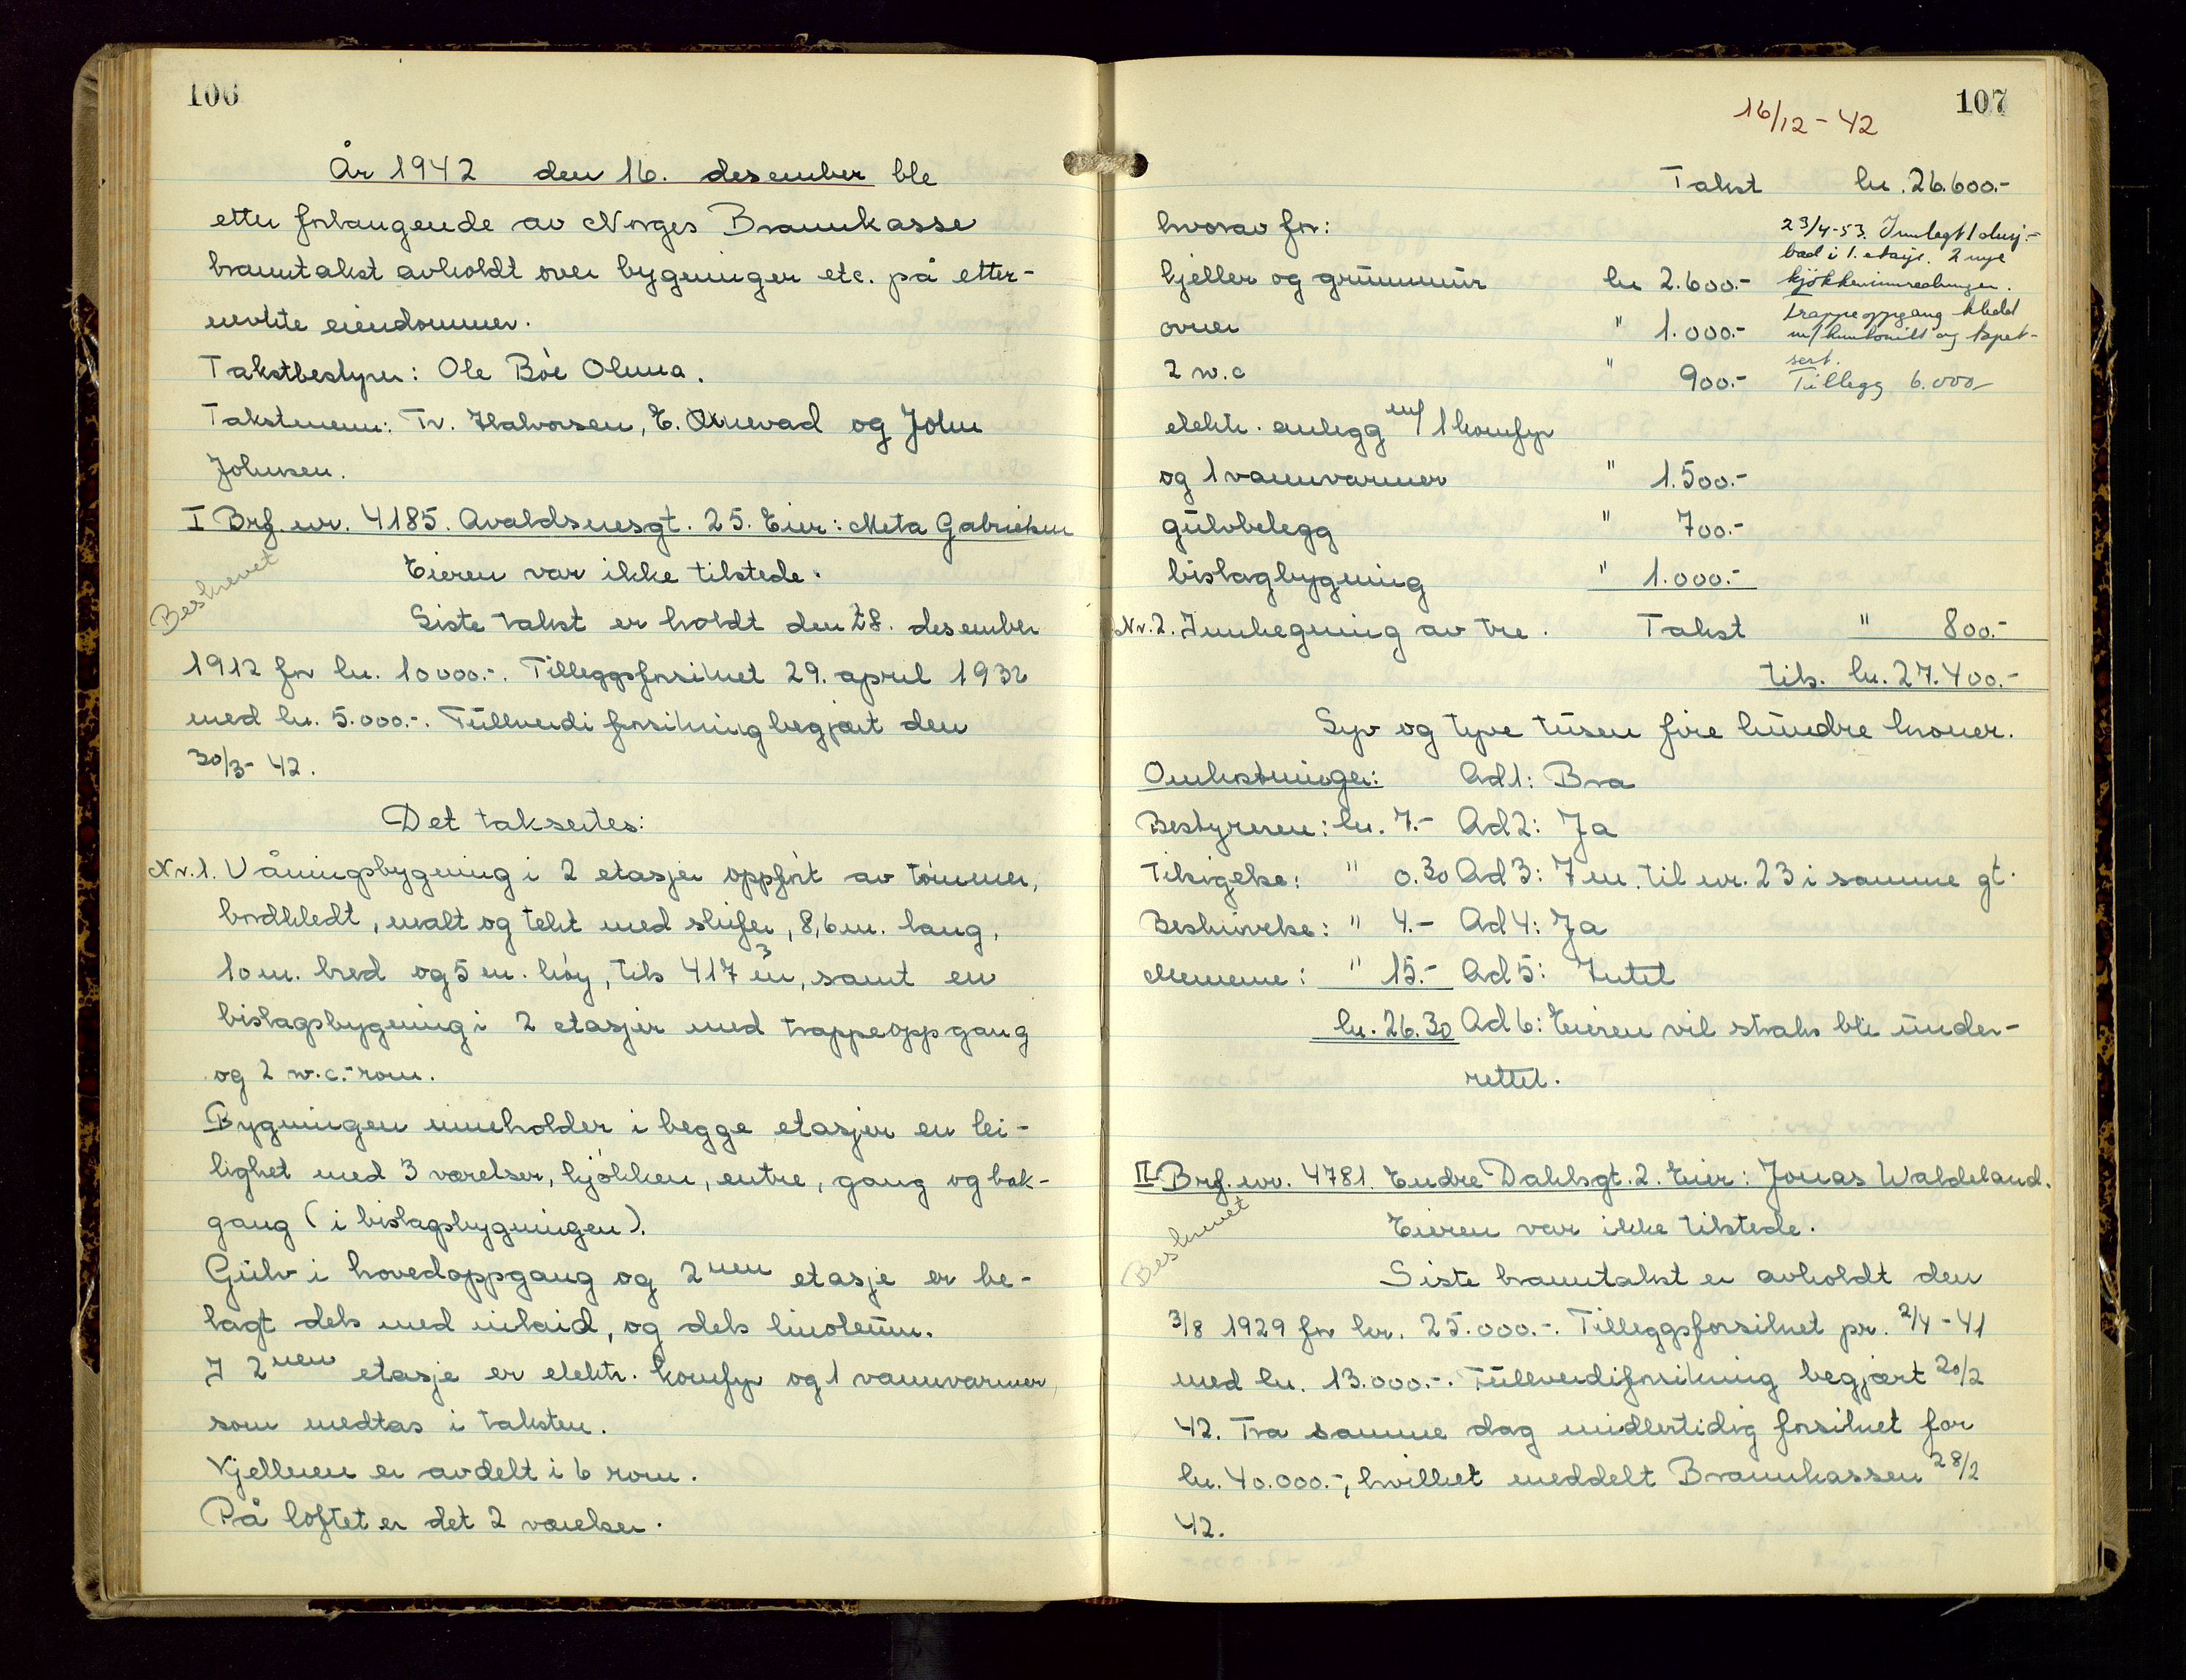 106
År 1942 den 16. desember ble
etter forlangende av Norges Brannkasse
branntakst avholdt over bygninger etc. på etter-
nevnte eiendommer.
Takstbestyrer: Ole Bøe Olsen.
Takstmenn: Tr. Halvorsen, E. Arnevad og John
Johnsen.
I Brf. nr. 4185. Avaldsnesgt. 25. Eier: Meta Gabrielsen
Beskrevet
Eieren var ikke tilstede.
Siste takst er holdt den 28. desember
1912 for kr. 10000.-. Tilleggsforsikret 29. april 1932
med kr. 5.000.-. Fullverdi forsikring begjært den
30/3- 42.
Det takseres:
Nr. 1. Våningsbygning i 2 etasjer oppført av tømmer,
bordkledt, malt og tekt med skifer, 8,6 m. lang,
10 m. bred og 5 m. høy, tils 417 m3, samt en
bislagsbygning i 2 etasjer med trappeoppgang
og 2 w.c.-rom.
Bygningen inneholder i begge etasjer en lei-
lighet med 3 værelser, kjøkken, entre, gang og bak-
gang (i bislagsbygningen).
Gulv i hovedoppgang og 2nen etasje er be-
lagt dels med inlaid, og dels linoleum.
I 2nen etasje er elektr. komfyr og 1 vannvarmer,
som medtas i taksten.
Kjelleren er avdelt i 6 rom.
På loftet er det 2 værelser.
107
16/12 - 42
Takst kr. 26.600.-
hvorav for:
kjeller og grunnmur kr 2.600.-
ovner " 1.000.-
2 w.c " 900.-
23/4-53. Innlagt 1 dusj-
bad i 1. etasje. 2 nye
kjøkkeninnredninger.
trappeoppgang kledd
m/ huntonitt og tapet-
sert.
Tillegg 6.000-
elektr. anlegg m/ 1 komfyr
og 1 vannvarmer " 1.500.-
gulvbelegg " 700.-
bislagbygning " 1.000.-
Nr. 2. Innhegning av tre. Takst " 800.-
tils. kr. 27.400.-
Syv og tyve tusen fire hundre kroner.
Omkostninger: Ad 1: Bra
Bestyreren: kr. 7.- Ad 2: Ja
Tilsigelse: " 0.30 Ad 3: 7 m. til nr. 23 i samme gt.
Beskrivelse: " 4.- Ad 4: Ja
Mennene: " 15.- Ad 5: Intet
kr. 26.30 Ad 6: Eieren vil straks bli under-
rettet.
II Brf. nr. 4781. Endre Dahlsgt. 2. Eier: Jonas Waldeland.
Beskrevet
Eieren var ikke tilstede.
Siste branntakst er avholdt den
3/8 1929 for kr. 25.000.-. Tilleggsforsikret pr. 2/4 - 41
med kr. 13.000.-. Fullverdiforsikring begjært 20/2
42. Fra samme dag midlertidig forsikret for
kr. 40.000.-, hvilket meddelt Brannkassen 28/2
42.